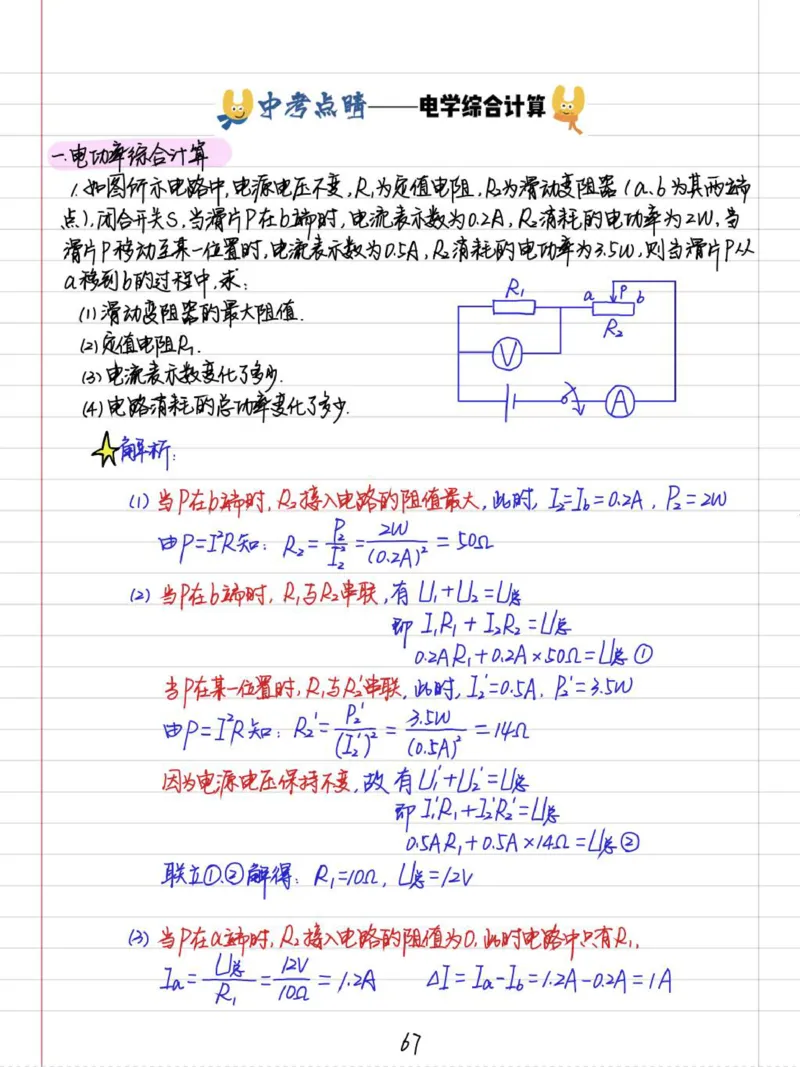 中考点睛——电学综合计算
一.电功率综合计算
1.如图所示电路中,电源电压不变,R₁为定值电阻,R₂为滑动变阻器(a、b为其两端
点),闭合开关S,当滑片P在b端时,电流表示数为0.2A,R₂消耗的电功率为2W,当
滑片P移动至某一位置时,电流表示数为0.5A,R₂消耗的电功率为3.5W,则当滑片P从
a移到b的过程中,求:
(1)滑动变阻器的最大阻值.
(2)定值电阻R₁.
(3)电流表示数变化了多少.
(4)电路消耗的总功率变化了多少.
R₁
a P b
R₂
V
A
解析:
(1)当P在b端时,R₂接入电路的阻值最大,此时,I₂=I_b=0.2A,P₂=2W
由P=I²R知:R₂=P₂/I₂²=2W/(0.2A)²=50Ω
(2)当P在b端时,R₁与R₂串联,有U₁+U₂=U总
即I₁R₁+I₂R₂=U总
0.2AR₁+0.2A×50Ω=U总①
当P在某一位置时,R₁与R₂'串联,此时,I₂'=0.5A,P₂'=3.5W
由P=I²R知:R₂'=P₂'/(I₂')²=3.5W/(0.5A)²=14Ω
因为电源电压保持不变,故有U₁'+U₂'=U总
即I₁'R₁+I₂'R₂'=U总
0.5AR₁+0.5A×14Ω=U总②
联立①、②解得:R₁=10Ω,U总=12V
(3)当P在a端时,R₂接入电路的阻值为0,此时电路中只有R₁,
Ia=U总/R₁=12V/10Ω=1.2A ΔI=Ia-Ib=1.2A-0.2A=1A
67